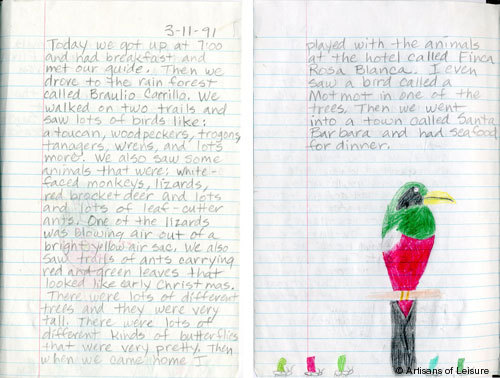 3-11-91
Today we got up at 7:00
and had breakfast and
met our guide. Then we
drove to the rain forest
called Braulio Carrillo. We
walked on two trails and
saw lots of birds like:
a toucan, woodpeckers, trogons,
tanagers, wrens, and lots
more. We also saw some
animals that were: white-
faced monkeys, lizards,
red brocket deer and lots
and lots of leaf-cutter
ants. One of the lizards
was blowing air out of a
bright yellow air sac. We also
saw trails of ants carrying
red and green leaves that
looked like early Christmas.
There were lots of different
trees and they were very
tall. There were lots of
different kinds of butterflies
that were very pretty. Then
when we came home I
played with the animals
at the hotel called Finca
Rosa Blanca. I even
saw a bird called a
Motmot in one of the
trees. Then we went
into a town called Santa
Barbara and had seafood
for dinner.
© Artisans of Leisure